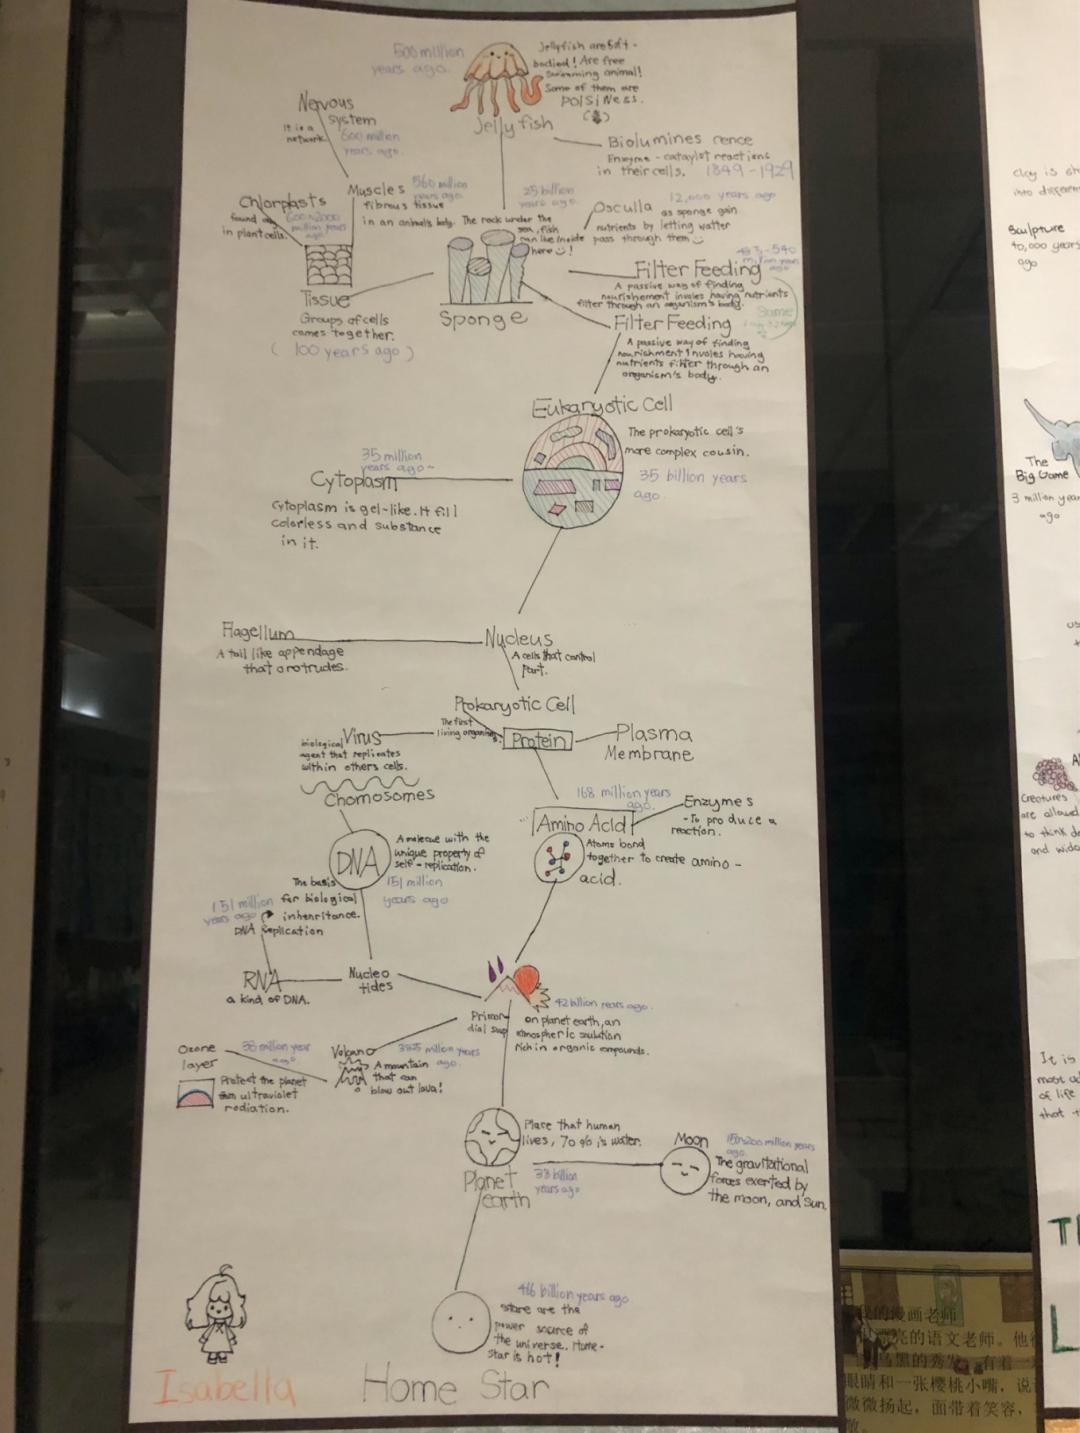 500 million
years ago.
Jellyfish are Soft -
bodied! Are free
swimming animal!
Some of them are
POISiNess.
Jelly fish
Nervous
system
It is a
network.
600 million
years ago.
Biolumines cence
Enzyme - cataylst reactions
in their cells. 1849-1929
Chlorplasts
found
in plant cells.
600~2000
million years
ago
Muscles 560 million
years ago.
fibrous tissue
in an animal's body.
25 billion
years ago.
The rock under the
sea, fish
can like inside
here!
Osculla 12,000 years ago
as sponge gain
nutrients by letting watter
pass through them
Tissue
Groups of cells
comes together.
(100 years ago)
Sponge
Filter Feeding
million years
ago
A passive way of finding
nourishement involes having nutrients
filter through an organism's body.
Same
Filter Feeding
A passive way of finding
nourishment involes having
nutrients filter through an
organism's body.
Eukaryotic Cell
The prokaryotic cell's
more complex cousin.
35 billion years
ago.
35 million
years ago~
Cytoplasm
Cytoplasm is gel-like. It fill
colorless and substance
in it.
Flagellum
A tail like appendage
that orotrudes.
Nucleus
A cells that control
part.
Prokaryotic Cell
The first
living organism
Protein
Plasma
Membrane
Virus
biological
agent that replicates
within others cells.
Chomosomes
168 million years
ago.
Amino Acid
Enzymes
- To produce a
reaction.
Atoms bond
together to create amino -
acid.
DNA
A molecue with the
unique property of
self-replication.
151 million
years ago
The basis
for biological
inhenritance.
151 million
years ago
DNA Replication
RNA
a kind of DNA.
Nucleo
tides
Primor-
dial soup
42 billion years ago.
on planet earth, an
atmospheric soulution
rich in organic compounds.
Ozone
layer
38 million year
ago
Protect the planet
from ultraviolet
radiation.
Volcano
million years
ago.
A mountain
that can
blow out lava!
Place that human
lives, 70% is water.
Planet
earth
38 billion
years ago
Moon
150~200 million years
ago.
The gravitational
forces exerted by
the moon, and sun.
46 billion years ago
stare are the
power source of
the universe. Home-
star is hot!
Isabella
Home Star
clay is
into different
Sculpture
40,000 years
ago
The
Big Game
3 million year
ago
Creatures
are allowed
to think
and
It is
most
of life
that
我的漫画老师
亮的语文老师。他
乌黑的秀发，有着一
眼睛和一张樱桃小嘴，说
微微扬起，面带着笑容，